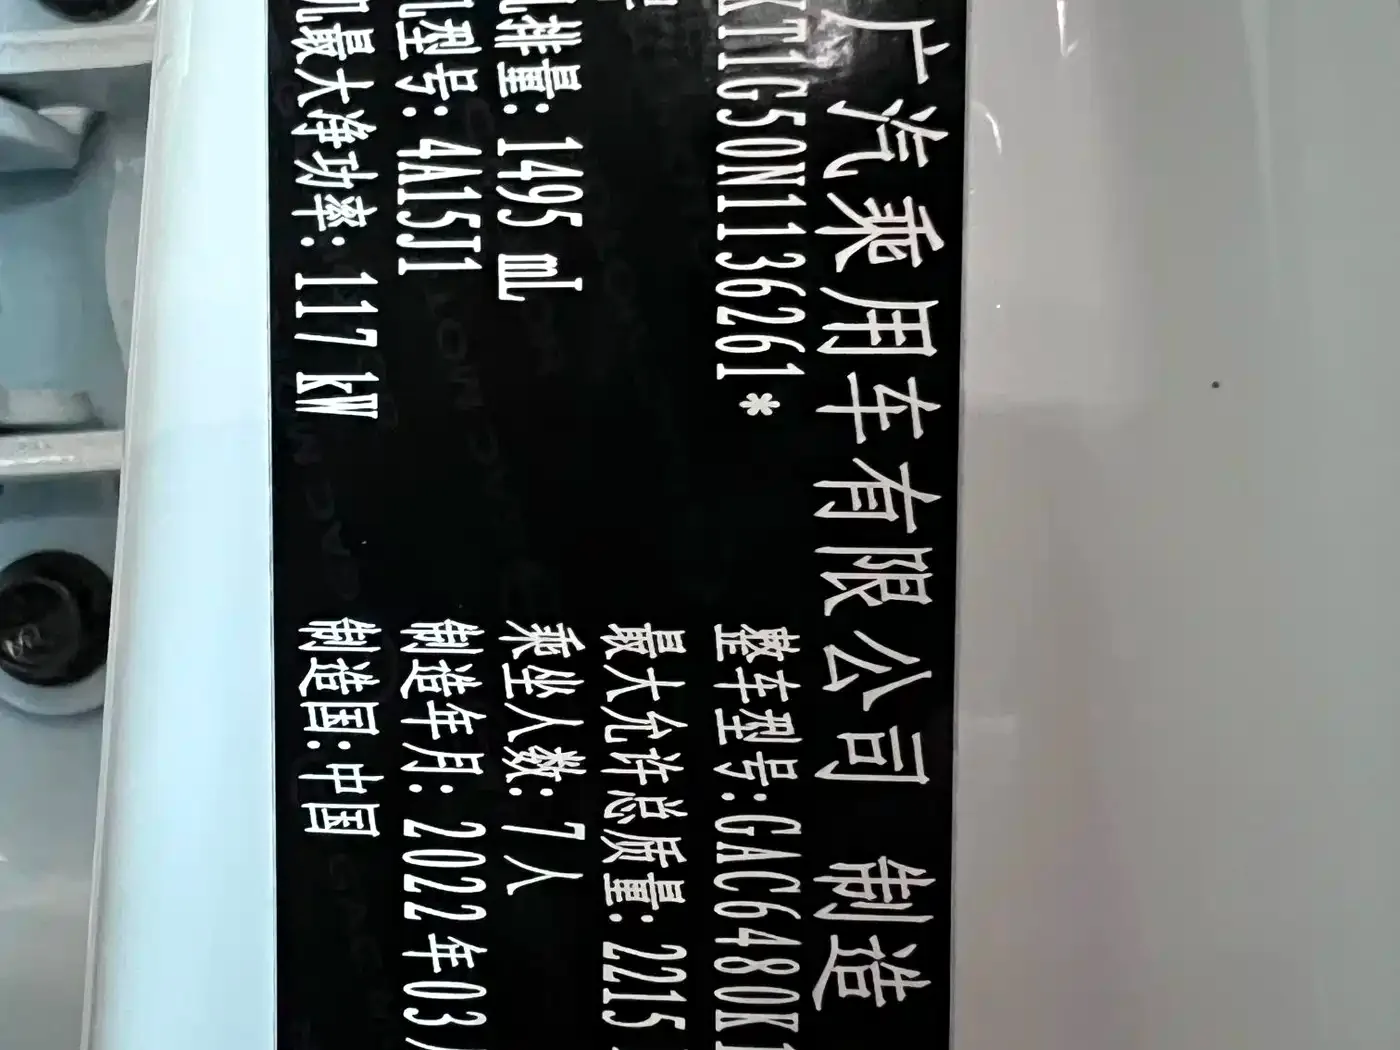 广汽乘用车有限公司 制造
KT1G50N1136261*
整车型号:GAC6480K1
最大允许总质量: 2215
机排量: 1495 mL
乘坐人数: 7人
机型号: 4A15J1
制造年月: 2022年03
机最大净功率: 117 kW
制造国: 中国